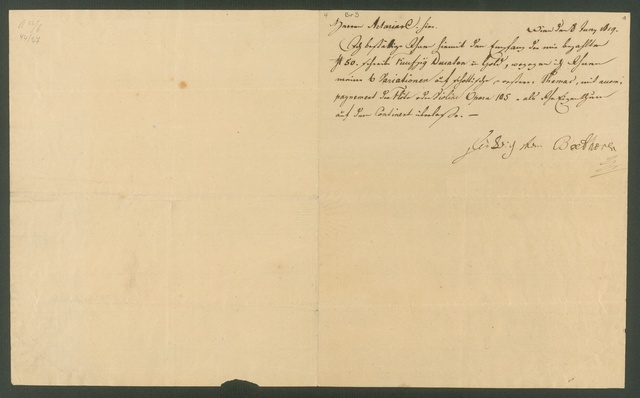 Br 3
Herren Artaria & C. hier. Wien den 18 Juny 1819.
Ich bestättige Ihnen hiemit den Empfang der mir bezahlten
# 50. schreibe Fünfzig Ducaten in Gold, wogegen ich Ihnen
meine 6 Variationen auf schottische Themas, mit accom-
pagnement der Flöte oder Violin Opera 105. als Ihr Eigenthum
auf dem Continent überlasse. —
Ludwig van Beethoven